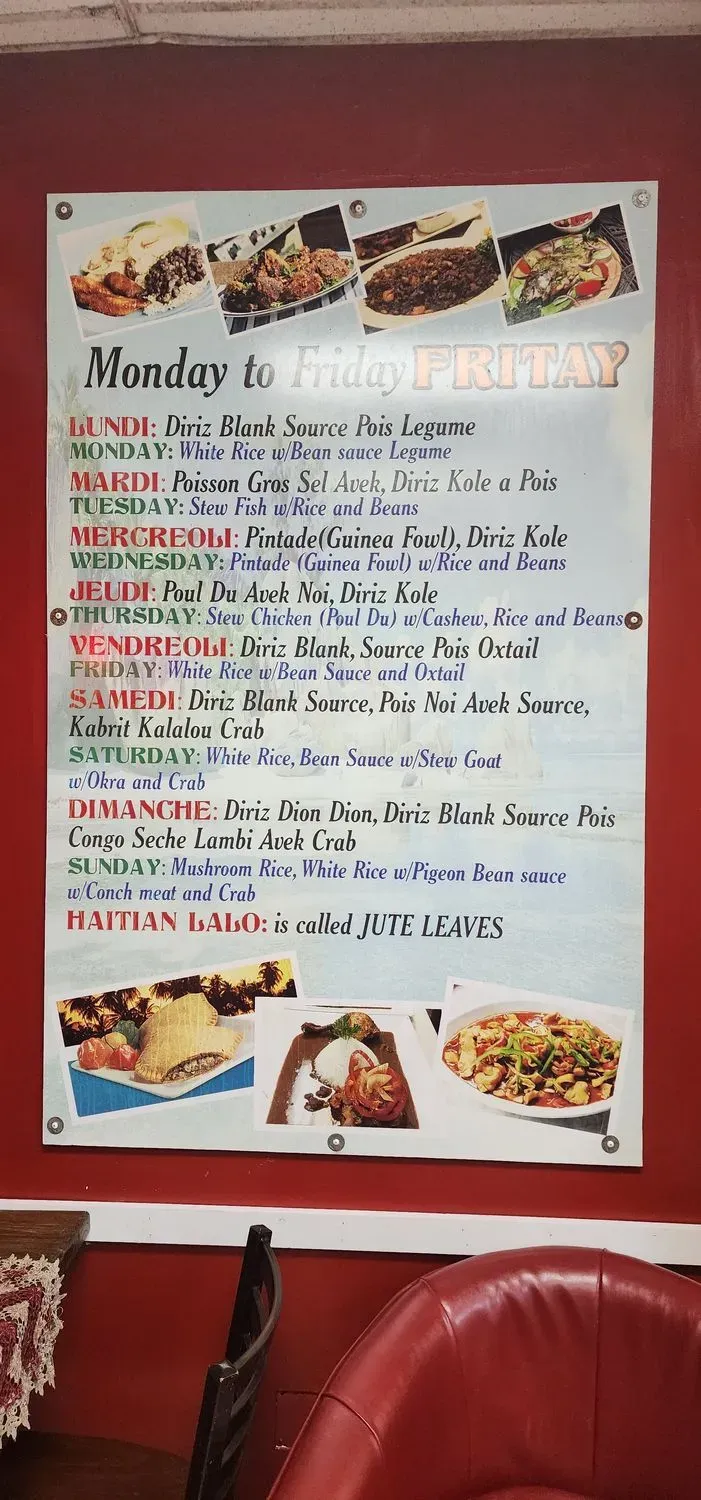 Monday to Friday FRITAY
LUNDI: Diriz Blank Source Pois Legume
MONDAY: White Rice w/Bean sauce Legume
MARDI: Poisson Gros Sel Avek, Diriz Kole a Pois
TUESDAY: Stew Fish w/Rice and Beans
MERCREOLI: Pintade(Guinea Fowl), Diriz Kole
WEDNESDAY: Pintade (Guinea Fowl) w/Rice and Beans
JEUDI: Poul Du Avek Noi, Diriz Kole
THURSDAY: Stew Chicken (Poul Du) w/Cashew, Rice and Beans
VENDREOLI: Diriz Blank, Source Pois Oxtail
FRIDAY: White Rice w/Bean Sauce and Oxtail
SAMEDI: Diriz Blank Source, Pois Noi Avek Source,
Kabrit Kalalou Crab
SATURDAY: White Rice, Bean Sauce w/Stew Goat
w/Okra and Crab
DIMANCHE: Diriz Dion Dion, Diriz Blank Source Pois
Congo Seche Lambi Avek Crab
SUNDAY: Mushroom Rice, White Rice w/Pigeon Bean sauce
w/Conch meat and Crab
HAITIAN LALO: is called JUTE LEAVES